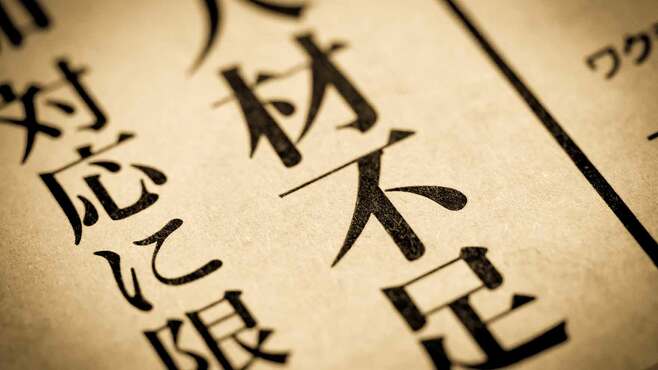 ワク
人材不足
対応に限